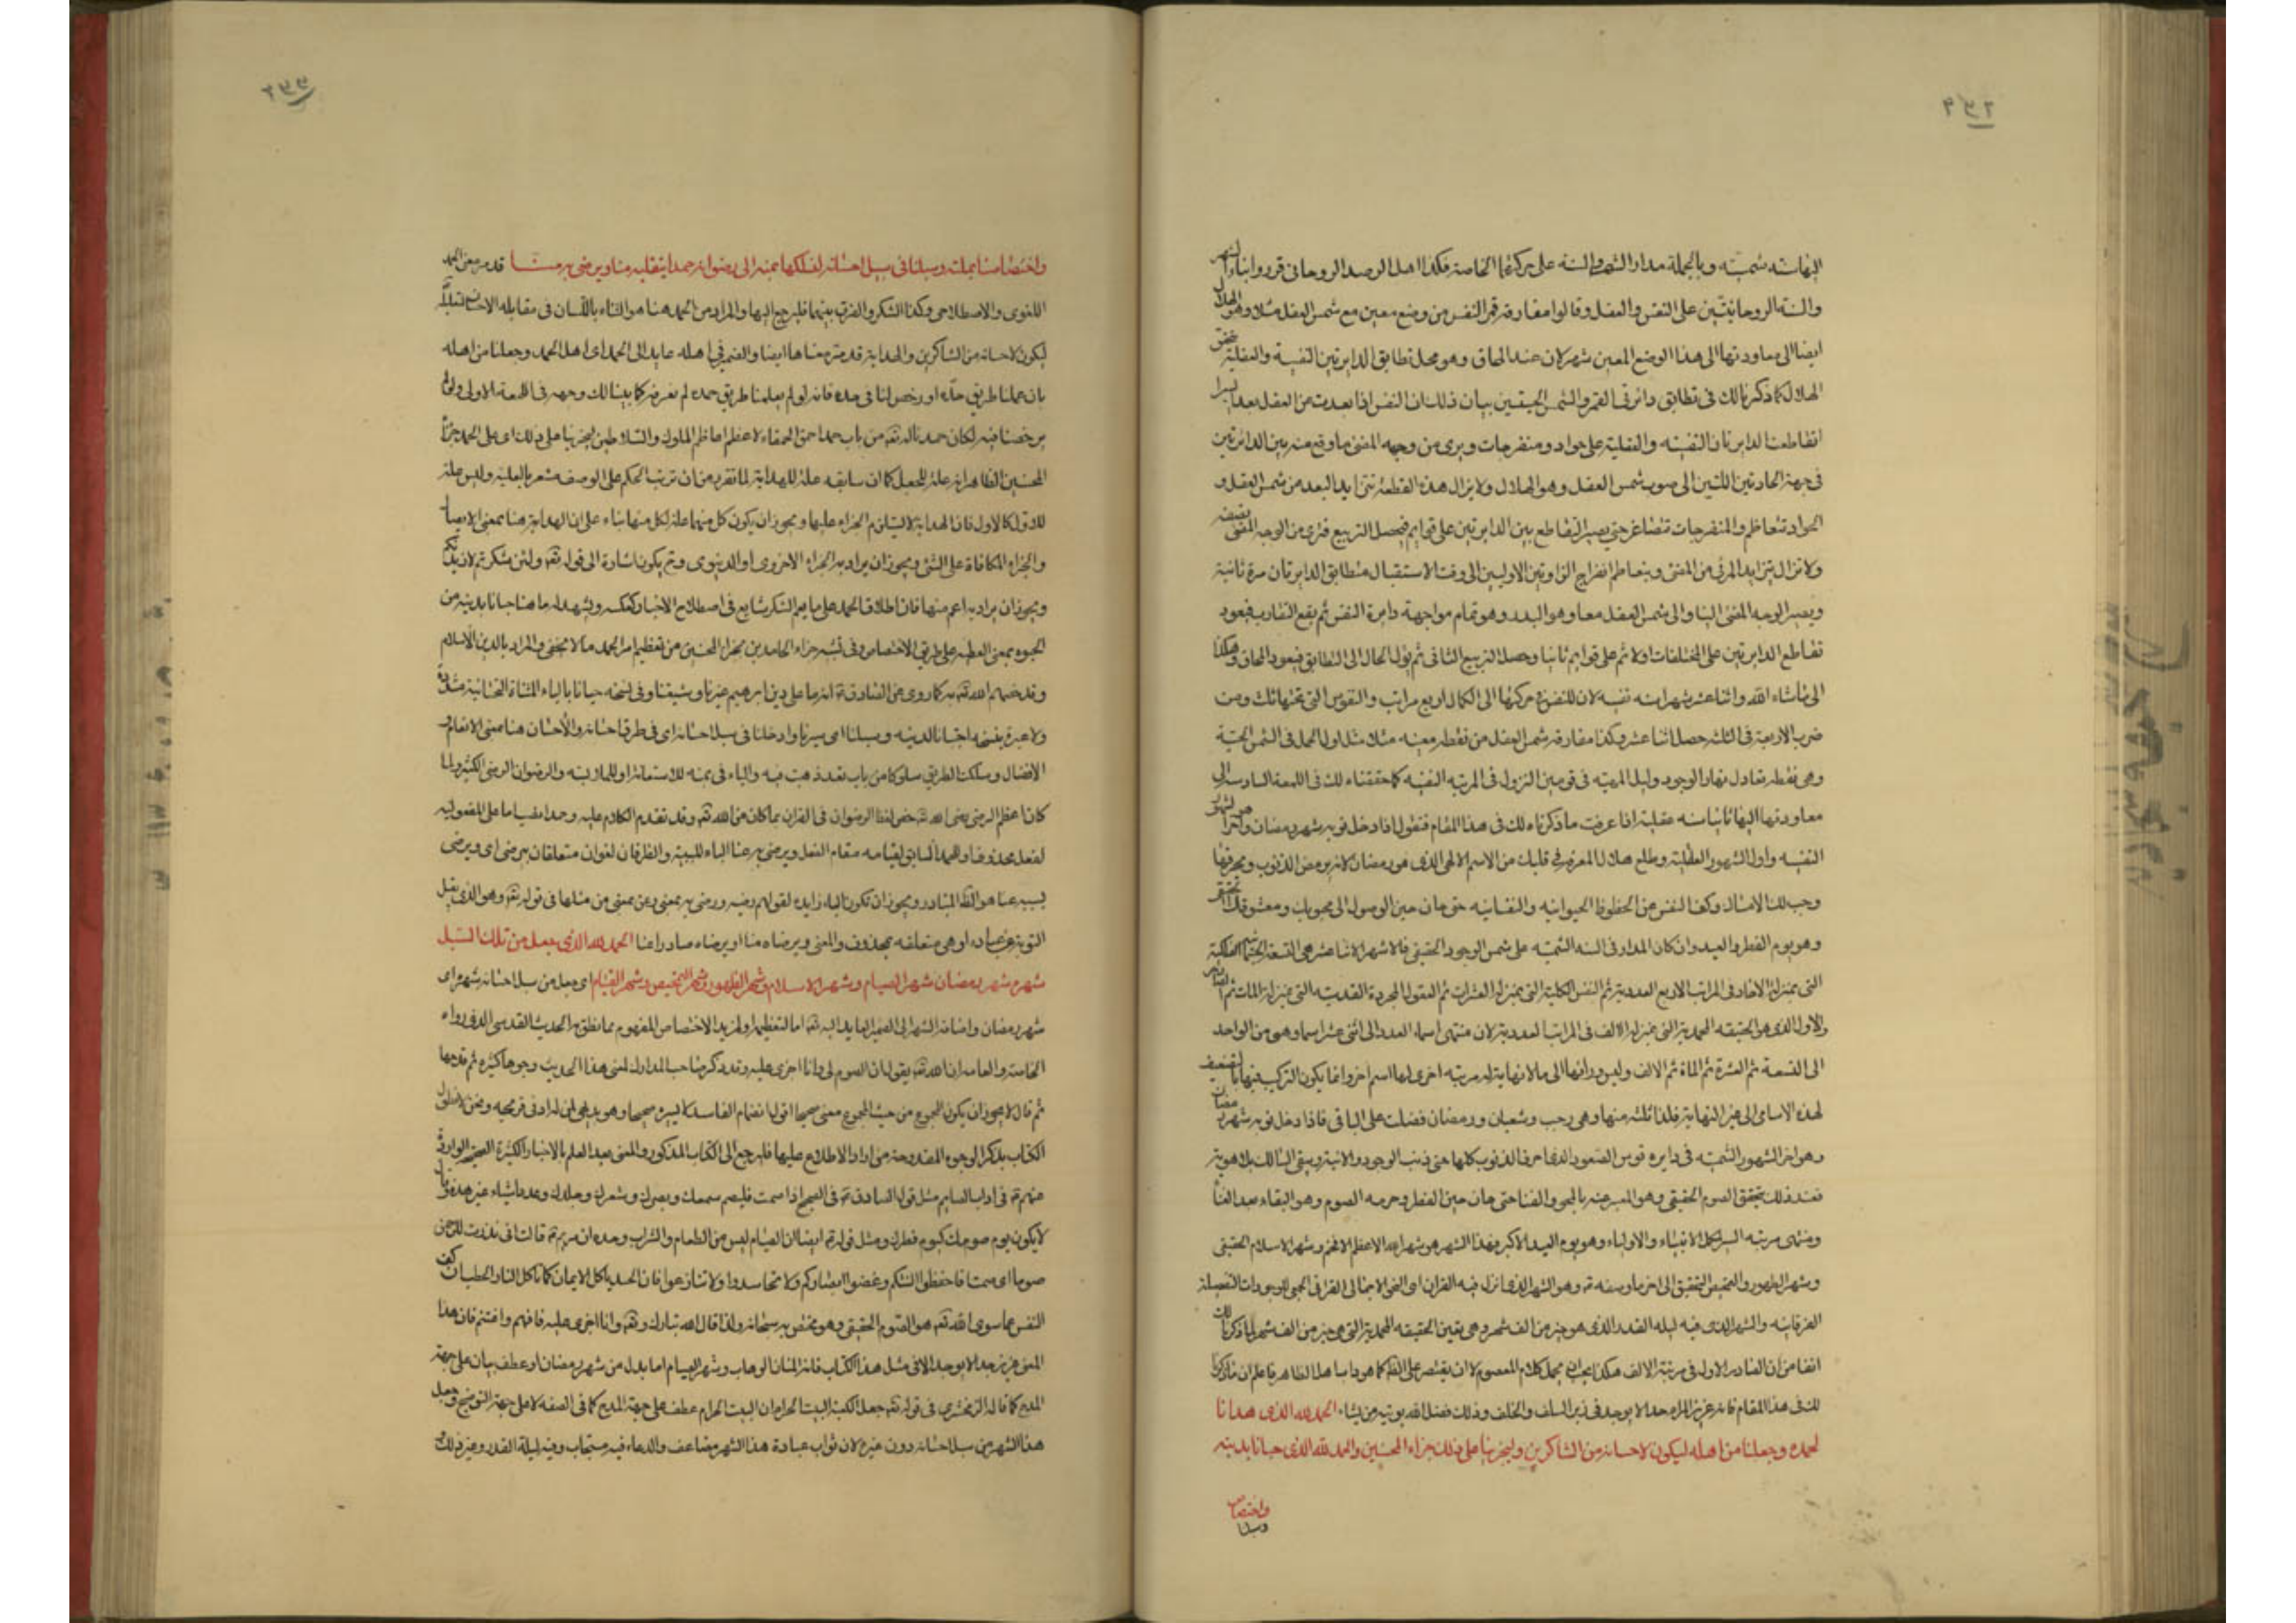 اليها سنة شمسية وبالجملة مدار الشهر والسنة على حركتهما الخاصة فكذا اهل الرصد الروحانى قرروا بناء الشهر
والسنة الروحانيتين على النفس والعقل وقالوا مفارقة قمر النفس من وضع معين مع شمس العقل مثلا وهو الهلال
ايضا الى معاودتها الى هذا الوضع المعين شهر لان عند المحاق وهو محل تطابق الدايرتين النفسية والعقلية يتحقق
الهلال كما ذكرنا لك فى تطابق دائرتى القمر والشمس الحسيتين بيان ذلك ان النفس اذا بعدت من العقل بعدا يسيرا
تقاطعت الدايرتان النفسية والعقلية على حواد ومنفرجات ويرى من وجهه المضئ ما وقع منه بين الدائرتين
فى جهة الحادتين اللتين الى صوب شمس العقل وهو الهلال ولا يزال هذه القطعة تتزايد البعد من شمس العقل و
الحواد تتعاظم والمنفرجات تتصاغر حتى يصير التقاطع بين الدايرتين على قوايم فيحصل التربيع فترى من الوجه المضئ نصفه
ولا تزال يتزايد المرئى من المضئ ويتعاظم انفراج الزاويتين الاوليين الى وقت الاستقبال فتطابق الدايرتان مرة ثانية
ويصير الوجه المضئ الينا والى شمس العقل معا وهو البدر وهو تمام مواجهة دايرة النفس ثم يقع التقارب فيعود
تقاطع الدايرتين على المختلفات اولا ثم على قوايم ثانيا وحصل التربيع الثانى ثم يؤل الحال الى التطابق فيعود المحاق وهكذا
الى ما شاء الله واثنا عشر شهرا سنة نفسية لان للنفس فى حركتها الى الكمال اربع مراتب والنفوس التى تحتها ثلث ومن
ضرب الاربعة فى الثلثة حصل اثنا عشر وكذا مفارقة شمس العقل من نقطة معينة مثلا مثل اول الحمل فى الشمس الحسية
وهى نقطة تعادل نهار الوجود وليل المهية فى قوسين النزول فى المرتبة النفسية كما حققناه لك فى اللمعة السادسة الى
معاودتها اليها ثانيا سنة عقلية اذا عرفت ما ذكرناه لك فى هذا المقام فنقول اذا دخل نوبة شهر رمضان وهو آخر الشهور
النفسية واول الشهور العقلية وطلع هلال المعرفة فى قلبك من الاسم الالهى الذى هو رمضان لانه يرمض الذنوب ويحرقها
وجب لك الامساك وكف النفس من الحظوظ الحيوانية والنفسانية حتى حان حين الوصول الى محبوبك ومعشوقك
وهو يوم الفطر والعيد وان كان المدار فى السنة الشمسية على شمس الوجود الحقيقى فالاشهر الاثنا عشر هى التسعة
التى بمنزلة الاحاد فى المراتب الاربع العددية ثم النفس الكلية التى بمنزلة العشرات ثم العقول المجردة القدسية التى بمنزلة المآت ثم
والاول الذى هو الحقيقة المحمدية التى بمنزلة الالف فى المراتب العددية لان منتهى اسماء العدد الى اثنى عشر اسما وهى من الواحد
الى التسعة ثم العشرة ثم المائة ثم الالف وليس ورائها الى ما لا نهاية له مرتبة اخرى لها اسم اخر وانما يكون التركيب فيها
لهذه الاسامى الى غير النهاية فلذا ثلثة منها وهى رجب وشعبان ورمضان فضلت على الباقى فاذا دخل نوبة شهر رمضان
وهو اخر الشهور الشمسية فى دايرة قوس الصعود الذى احرق الذنوب كلها حتى ذنب الوجود والانية ويبقى السالك بلا هوية
فعند ذلك يتحقق الصوم الحقيقى وهو المعبر عنه بالمحو والفنا حتى حان حين الفطر وحرمة الصوم وهو البقاء بعد الفنا
ومنتهى مرتبة السير لكمل الانبياء والاولياء وهو يوم العيد الاكبر فهذا الشهر هو شهر الله الاعظم الافخم وشهر الاسلام الحقيقى
وشهر الطهور والتمحيص التحقيق الى اخر ما وصفه وهو الشهر الذى انزل فيه القران اى الفيض الاجمالى القرآنى
الفرقانية والشهر الذى فيه ليلة القدر الذى هو خير من الف شهر وهى تعين الحقيقة المحمدية التى هى خير من الف شهر لما ذكرنا لك
انفا من ان الصادر الاول فى مرتبة الالف هكذا يجب ان يحمل كلام المعصوم لا ان يقتصر على الظاهر كما هو داب اهل الظاهر فاعلم ان ما ذكرنا
لك فى هذا المقام فانه عزيز المرام جدا لا يوجد فى زبر السلف والخلف وذلك فضل الله يؤتيه من يشاء الحمد لله الذى هدانا
لحمده وجعلنا من اهله ليكون لاحسانه من الشاكرين وليجزينا على ذلك جزاء المحسنين والحمد لله الذى حبانا بدينه
واختصنا
وسبلنا
واختصنا بملته وسبلنا فى سبل احسانه لنسلكها بمنه الى رضوانه حمدا يتقبله منا ويرضى به عنا قد مر معنى الحمد
اللغوى والاصطلاحى وكذا الشكر والفرق بينهما فليرجع اليها والمراد من الحمد هنا هو الثناء باللسان فى مقابلة الاحسان
ليكون لاحسانه من الشاكرين والهداية قد مر معناها ايضا والضمير فى اهله عايد الى الحمد اى اهل الحمد وجعلنا من اهله
بان علمنا طريق حمده او رخص لنا فى حمده فانه لو لم يعلمنا طريق حمده لم نعرفه كما بينا لك وجهه فى اللمعة الاولى ولو لم
يرخصنا فيه لكان حمدنا له تعه من باب حمد احمق الحمقاء لاعظم اعاظم الملوك والسلاطين ليجزينا على ذلك اى على الحمد جزاء
المحسنين الظاهر انه علة للجعل كما ان سابقه علة للهداية لما تقرر من ان ترتب الحكم على الوصف مشعر بالعلية وليس علة
للاول كالاول فان الهداية لا يستلزم الجزاء عليها ويجوز ان يكون كل منهما علة لكل منهما بناء على ان الهداية هنا بمعنى الايصال
والجزاء المكافاة على الشئ ويجوز ان يراد به الجزاء الاخروى او الدنيوى وح يكون اشارة الى قوله تعه ولئن شكرتم لازيدنكم
ويجوز ان يراد به اعم منهما فان اطلاق الحمد على ما يعم الشكر شايع فى اصطلاح الاخبار كعكسه ويشهد له ما هنا حبانا بدينه من
الحبوه بمعنى العطية على طريق الاختصاص وفى تشبيه جزاء الحامدين بجزاء المحسنين من تعظيم امر الحمد ما لا يخفى والمراد بالدين الاسلام
وقد خصهم الله تعه به كما روى عن الصادق انه ما على دين ابرهيم غيرنا وشيعتنا وفى نسخة حيانا بالياء المثناة التحتانية
ولا عبرة بنسخة اجتبانا لدينه وسبلنا اى سيرنا وادخلنا فى سبل احسانه اى فى طرق احسانه والاحسان هنا بمعنى الانعام و
الافضال وسلكت الطريق سلوكا من باب قعد ذهبت فيه والباء فى بمنه للاستعانة او للملابسة والرضوان الرضى الكثير ولما
كان اعظم الرضى رضى الله تعه خص لفظ الرضوان فى القران بما كان من الله تعه وقد تقدم الكلام عليه وحمدا نصب اما على المفعولية
لفعل محذوف او للحمد السابق لقيامه مقام الفعل ويرضى به عنا الباء للسببية والظرفان لغوان متعلقان بيرضى اى ويرضى
بسببه عنا هو الظ المتبادر ويجوز ان تكون الباء زايدة لقولهم رضيه ورضى به بمعنى وعن بمعنى من مثلها فى قوله تعه وهو الذى يقبل
التوبة عن عباده او هى متعلقه بمحذوف والمعنى ويرضاه منا او يرضاه صادرا عنا الحمد لله الذى جعل من تلك السبل
شهره شهر رمضان شهر الصيام وشهر الاسلام وشهر الطهور وشهر التمحيص وشهر القيام اى جعل من سبل احسانه شهره اى
شهر رمضان واضافة الشهر الى الضمير العايد اليه تعه اما لتعظيمه او لمزيد الاختصاص المفهوم بما نطق به الحديث القدسى الذى رواه
الخاصة والعامة ان الله تعه يقول ان الصوم لى وانا اجزى عليه وقد ذكر صاحب المدارك لمعنى هذا الحديث وجوها كثيرة ثم قدحها
ثم قال لا يجوز ان يكون المجموع من حيث المجموع معنى صحيحا اقول انضمام الفاسد لا يصيره صحيحا وهو بديهى
الكتاب بذكر الوجوه المقدوحة من اراد الاطلاع عليها فليرجع الى الكتاب المذكور والمعنى بعد العلم بالاخبار الكثيرة الصحيحة الواردة
عنهم فى اداب الصايم مثل قول الصادق فى الصحيح اذا صمت فليصم سمعك وبصرك وشعرك وجلدك وعد اشياء غير هذه وقال
لا يكون يوم صومك كيوم فطرك ومثل قوله ايضا ان الصيام ليس من الطعام والشراب وحده ان مريم قالت انى نذرت للرحمن
صوما اى صمتا فاحفظوا السنتكم وغضوا ابصاركم ولا تحاسدوا ولا تنازعوا فان الحسد ياكل الايمان كما تاكل النار الحطب ان كف
النفس عما سوى الله تعه هو الصوم الحقيقى وهو مختص به سبحانه ولذا قال الله تبارك وتعه وانا اجزى عليه فافهم واغتنم فان هذا
المعنى عزيز جدا لا يوجد الا فى مثل هذا الكتاب فانه المنان الوهاب وشهر الصيام اما بدل من شهر رمضان او عطف بيان على جهة
المدح كما قاله الزمخشرى فى قوله تعه جعل الكعبة البيت الحرام ان البيت الحرام عطف على جهة المدح كما فى الصفة لا على جهة التوضيح وجعل
هذا الشهر من سبل احسانه دون غيره لان ثواب عبادة هذا الشهر مضاعف والدعاء فيه مستجاب وفيه ليلة القدر وغير ذلك